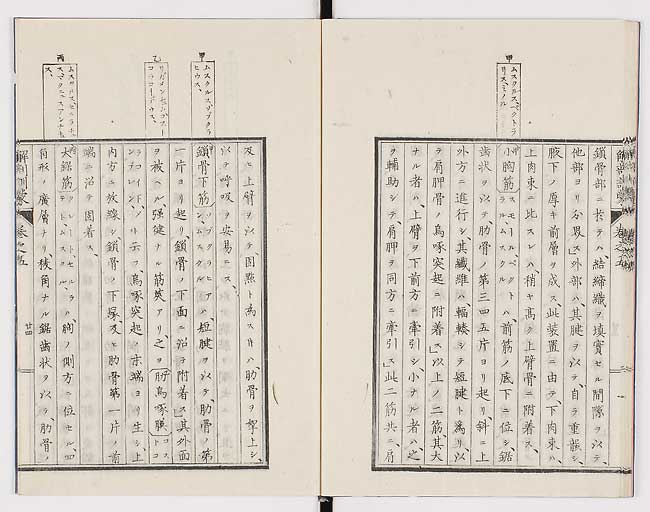 甲
ムスクルス、ペクトラ
リス、ミノル
鎖骨部ニ於テハ、結締織ヲ填實セル間隙ヲ以テ、
他部ヨリ分界ス」外部ハ、其腱ヲ以テ、自ラ重襲シ、
腋下ノ厚キ前層ヲ成ス、此装置ニ由テ、下肉束ハ、
上肉束ニ比スレハ、稍ヤ高ク上臂骨ニ附着ス、
小胸筋 スモールペクト
ラルムスクル ハ、前筋ノ底下ニ位シ、鋸
歯状ヲ以テ肋骨ノ第三四五片ヨリ起リ、斜ニ上
外方ニ進行シ、其纖維ハ、輻輳シテ短腱ト為リ、以
テ肩胛骨ノ烏啄突起ニ附着ス」以上ノ二筋、其大
ナル者ハ、上臂ヲ下前方ニ牽引シ、小ナル者ハ、之
ヲ輔助シテ、肩胛ヲ同方ニ牽引ス」此二筋共ニ、肩
甲
ムスクルス、ソブクラ
ヒウス、
乙
丙
及ヒ上臂ヲ以テ固點ト為スキハ、肋骨ヲ擧上シ、
以テ呼吸ヲ安易ニス、
鎖骨下筋 ソブクラヒアン、
ムスクル ハ、短腱ヲ以テ、肋骨ノ第
一片ヨリ起リ、鎖骨ノ下面ニ沿テ附着ス」其外面
ヲ被ヘル、强健ナル筋莢アリ、之ヲ肋烏啄膜
ト云フ、烏啄突起ノ末端ヨリ生シ、上
内方ニ放線シ、鎖骨ノ下縁及ヒ肋骨第一片ノ前
端ニ沿テ固着ス、
大鋸筋 ハ、胸ノ側方ニ位セル、四
角形ノ廣層ナリ、稜角ナル鋸歯状ヲ以テ、肋骨ノ
解剖訓蒙
卷之五
廿四